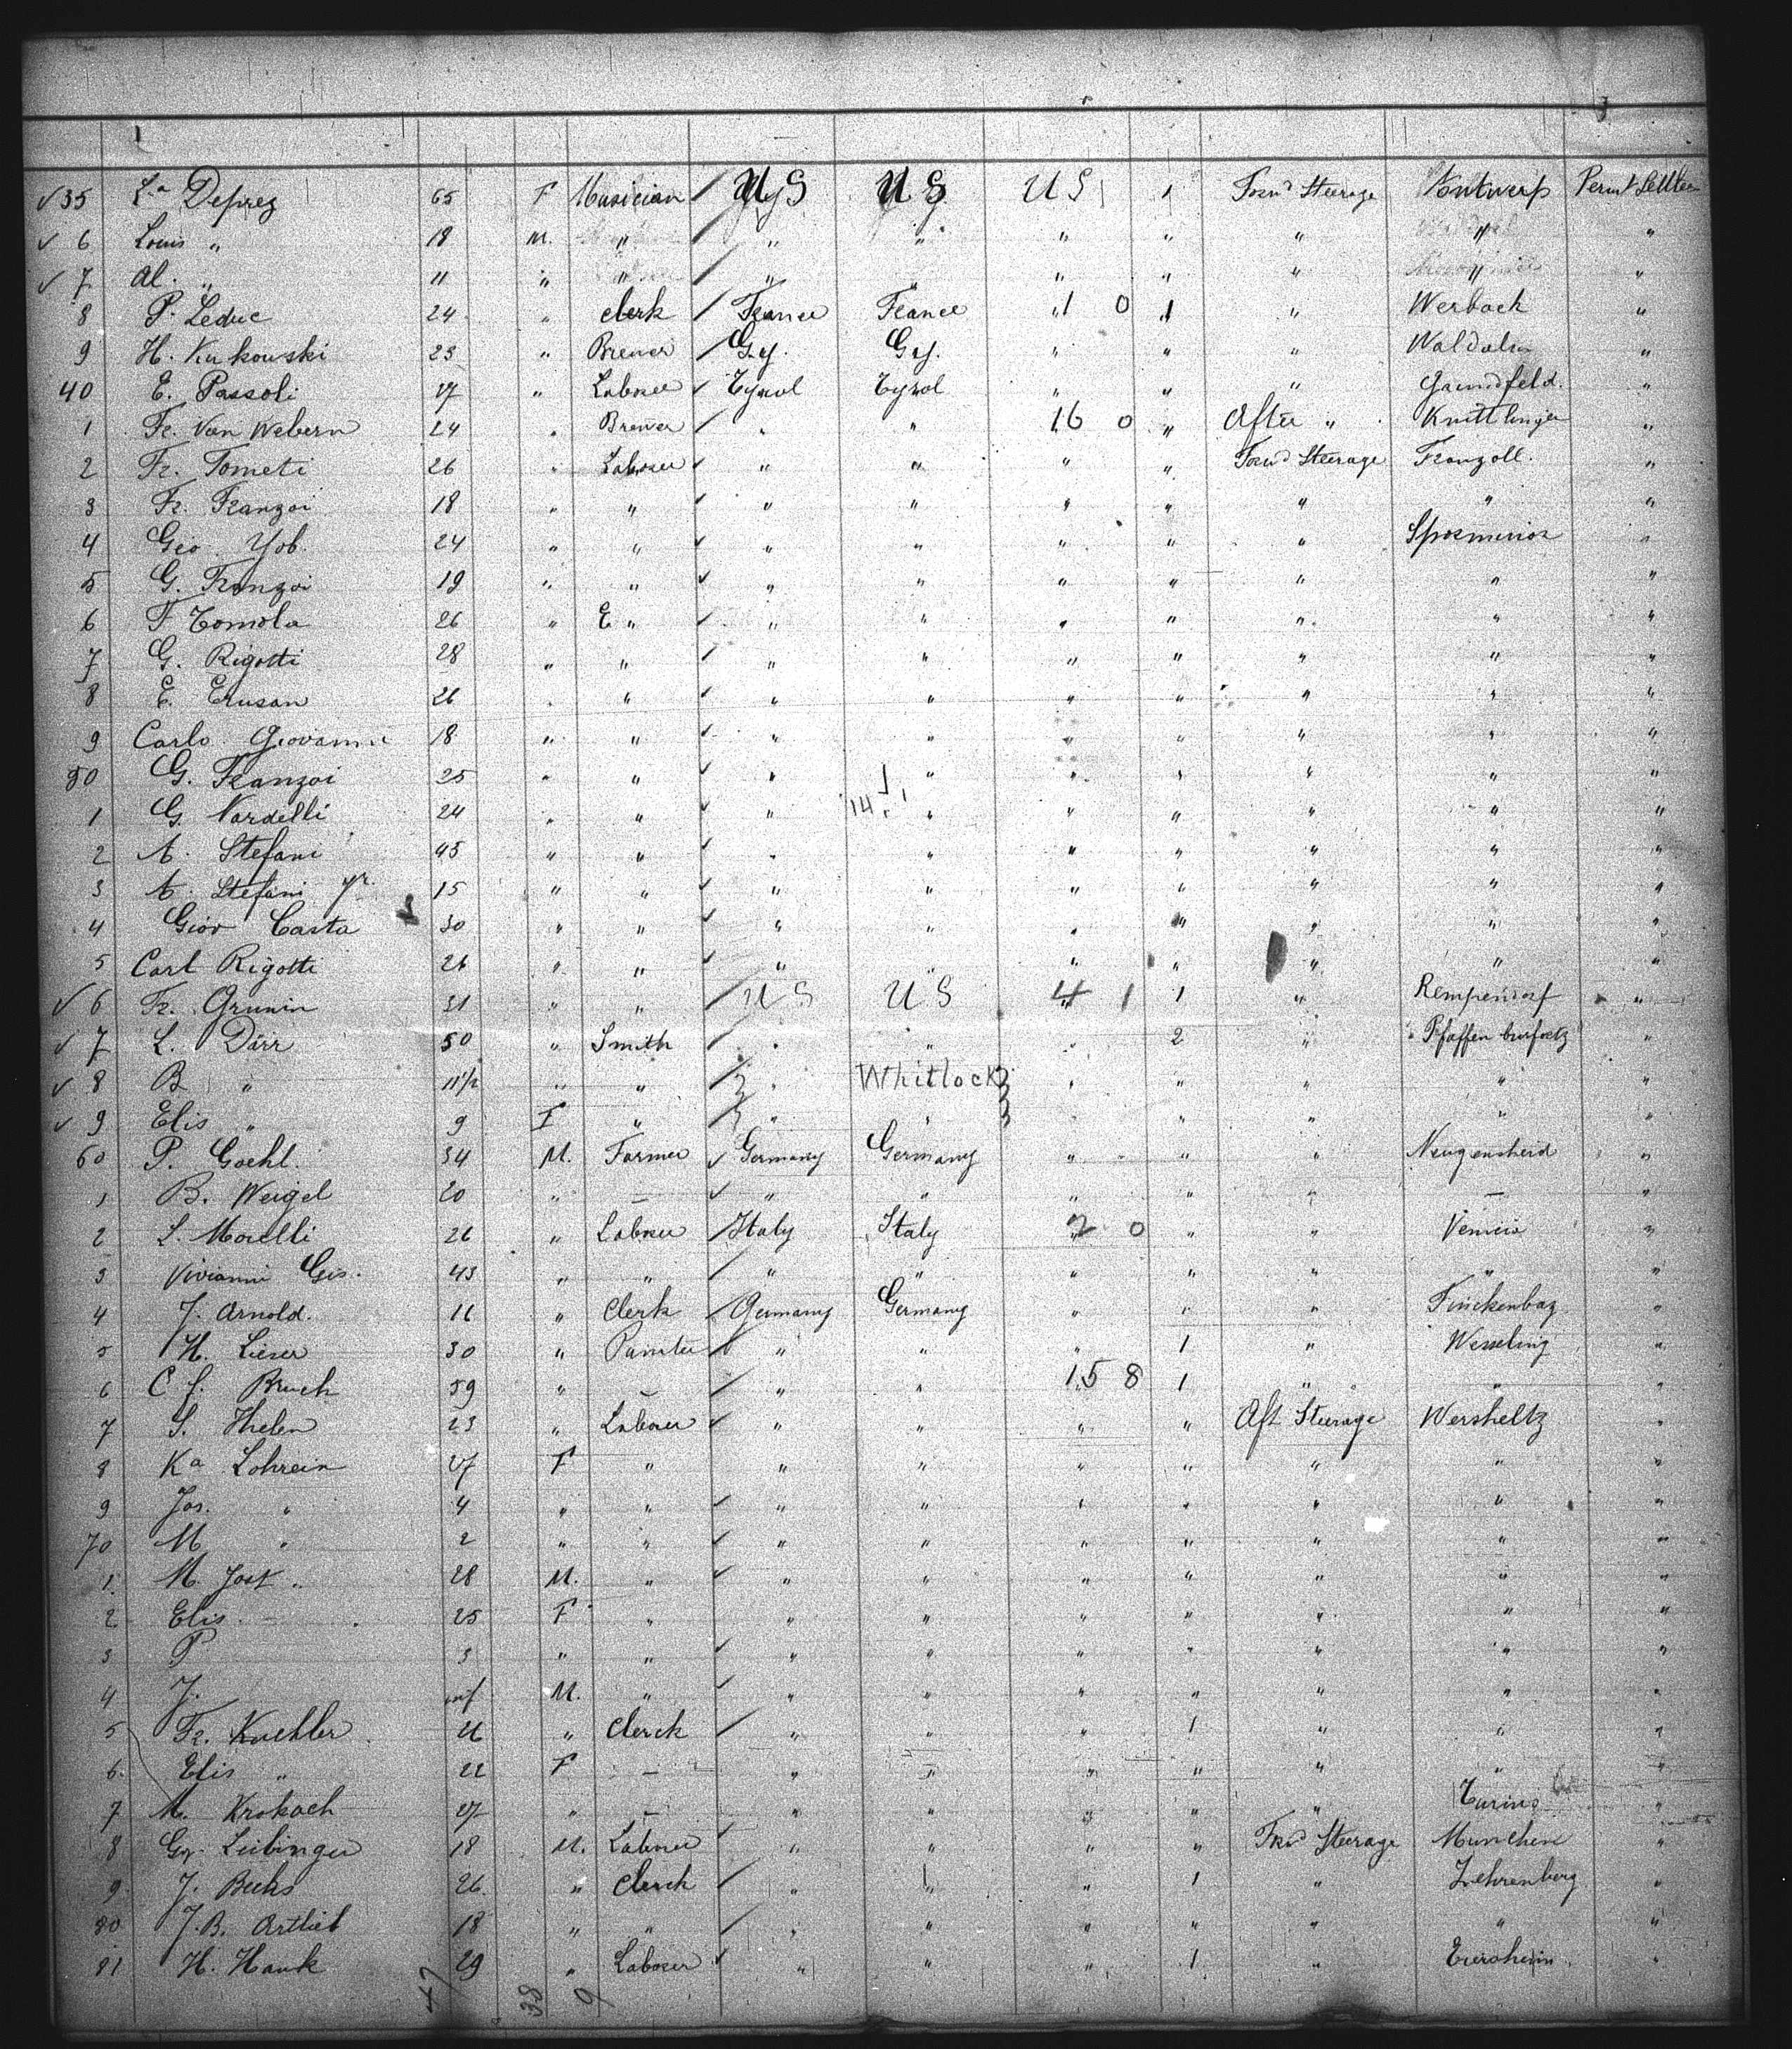 35 La Deprez 65 F Musician US US US 1 Forwd Steerage Antwerp Permt Settler
6 Louis " 18 M. " " " " " " " "
7 Al. " 11 " " " " " " " "
8 P. Leduc 24 " Clerk France France " 1 0 1 " Werbach "
9 H. Kukowski 23 " Brewer Gy. Gy. " " " Waldalm "
40 E. Passoli 27 " Laborer Tyrol Tyrol " " " "
1 Fr. Van Webern 24 " Brewer " " 16 0 " After " Knittlinger "
2 Fr. Tometi 26 " Laborer " " " " Forwd Steerage Franzoll. "
3 Fr. Franzoi 18 " " " " " " " " "
4 Geo. Yob. 24 " " " " " " " Sposminior "
5 G. Franzoi 19 " " " " " " " " "
6 F Tomola 26 " E " " " " " " " "
7 G. Rigotti 28 " " " " " " " " "
8 E. Erusan 26 " " " " " " " " "
9 Carlo Giovanni 18 " " " " " " " " "
50 G. Franzoi 25 " " " " " " " " "
1 G. Nardelli 24 " " " 14 " " " " " "
2 A. Stefani 45 " " " " " " " " "
3 A. Stefani Jr. 15 " " " " " " " " "
4 Giov Casta 30 " " " " " " " " "
5 Carl Rigotti 26 " " " " " " " " "
6 Fr. Grunin 31 " " US US 4 1 1 " Rempendorf "
7 L. Dörr 50 " Smith " " " 2 " "
8 B " 11 1/2 " " " Whitlock " " " " "
9 Elis " 9 F " " " " " " " "
60 P. Goehl. 34 M. Farmer Germany Germany " " " Neugensheid "
1 B. Weigel 20 " — " " " " " — "
2 L. Morelli 26 " Laborer Italy Italy 2 0 " " "
3 Vivianni Gis. 43 " " " " " " " " "
4 J. Arnold. 16 " Clerk Germany Germany " " " "
5 H. Lieser 30 " Painter " " " 1 " Wesseling "
6 C f. Bruch 59 " — " " 15 8 1 " " "
7 S. Thelen 23 " Laborer " " " " Aft Steerage Wersheltz "
8 Ka Lohrein 27 F " " " " " " " "
9 Jos. " 4 " " " " " " " " "
70 M " 2 " " " " " " " " "
1. M. Jost " 28 M. " " " " " " " "
2 Elis. 25 F " " " " " " " "
3 P 3 " " " " " " " " "
4 J. inf M. " " " " " " " "
5 Fr. Kuehler 26 " Clerck " " " 1 " " "
6. Elis " 22 F — " " " " " " "
7 M. Krokach 27 " — " " " " " "
8 Gg. Leibinger 18 M. Laborer " " " " Forwd Steerage Munchen "
9 J. Becks 26. " Clerck " " " 1 " Lehrenberg "
80 J.B. Ortlieb 18 " " " " " " " " "
81 H. Hauk 29 " Laborer " " " 1 " Eiersheim "
47 38 9